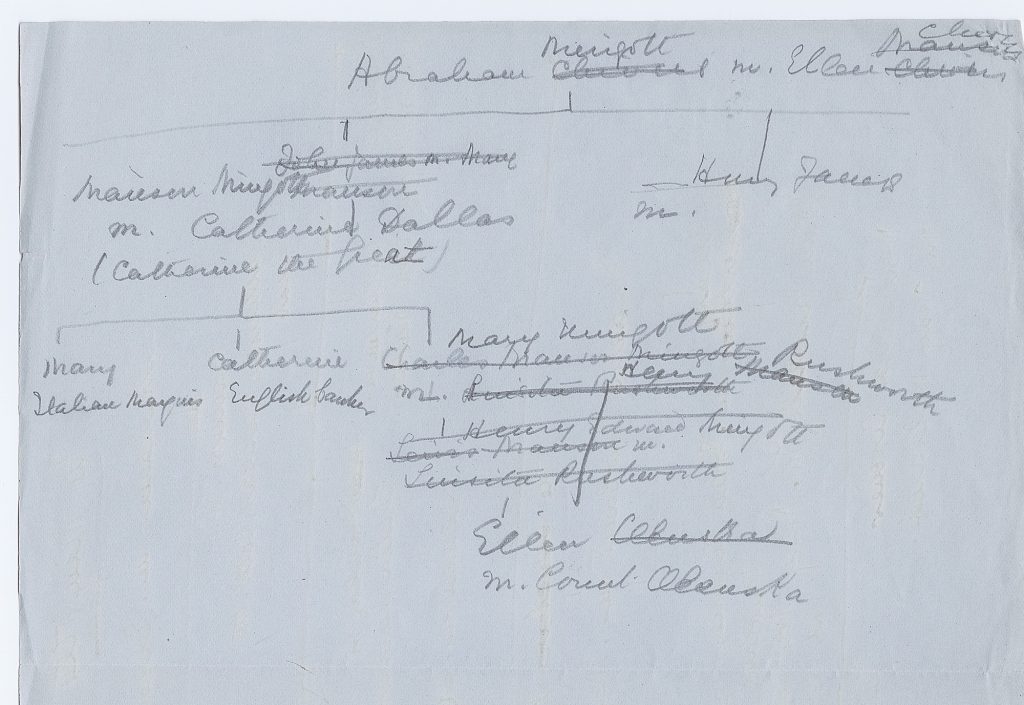 Chivers
Mingott Manson
Abraham Chivers m. Ellen Chivers
John James m. Mary
Manson Mingott Manson
m. Catherine Dallas
(Catherine the Great)
Henry James
m.
Mary Mingott
Mary Catherine Charles Manson Mingott Rushworth
Henry Manson
Italian Marquis English banker m. Lucretia Rushworth
Henry Edward Mingott
Manson m.
Rashworth
Ellen Olenska
m. Count Olenska